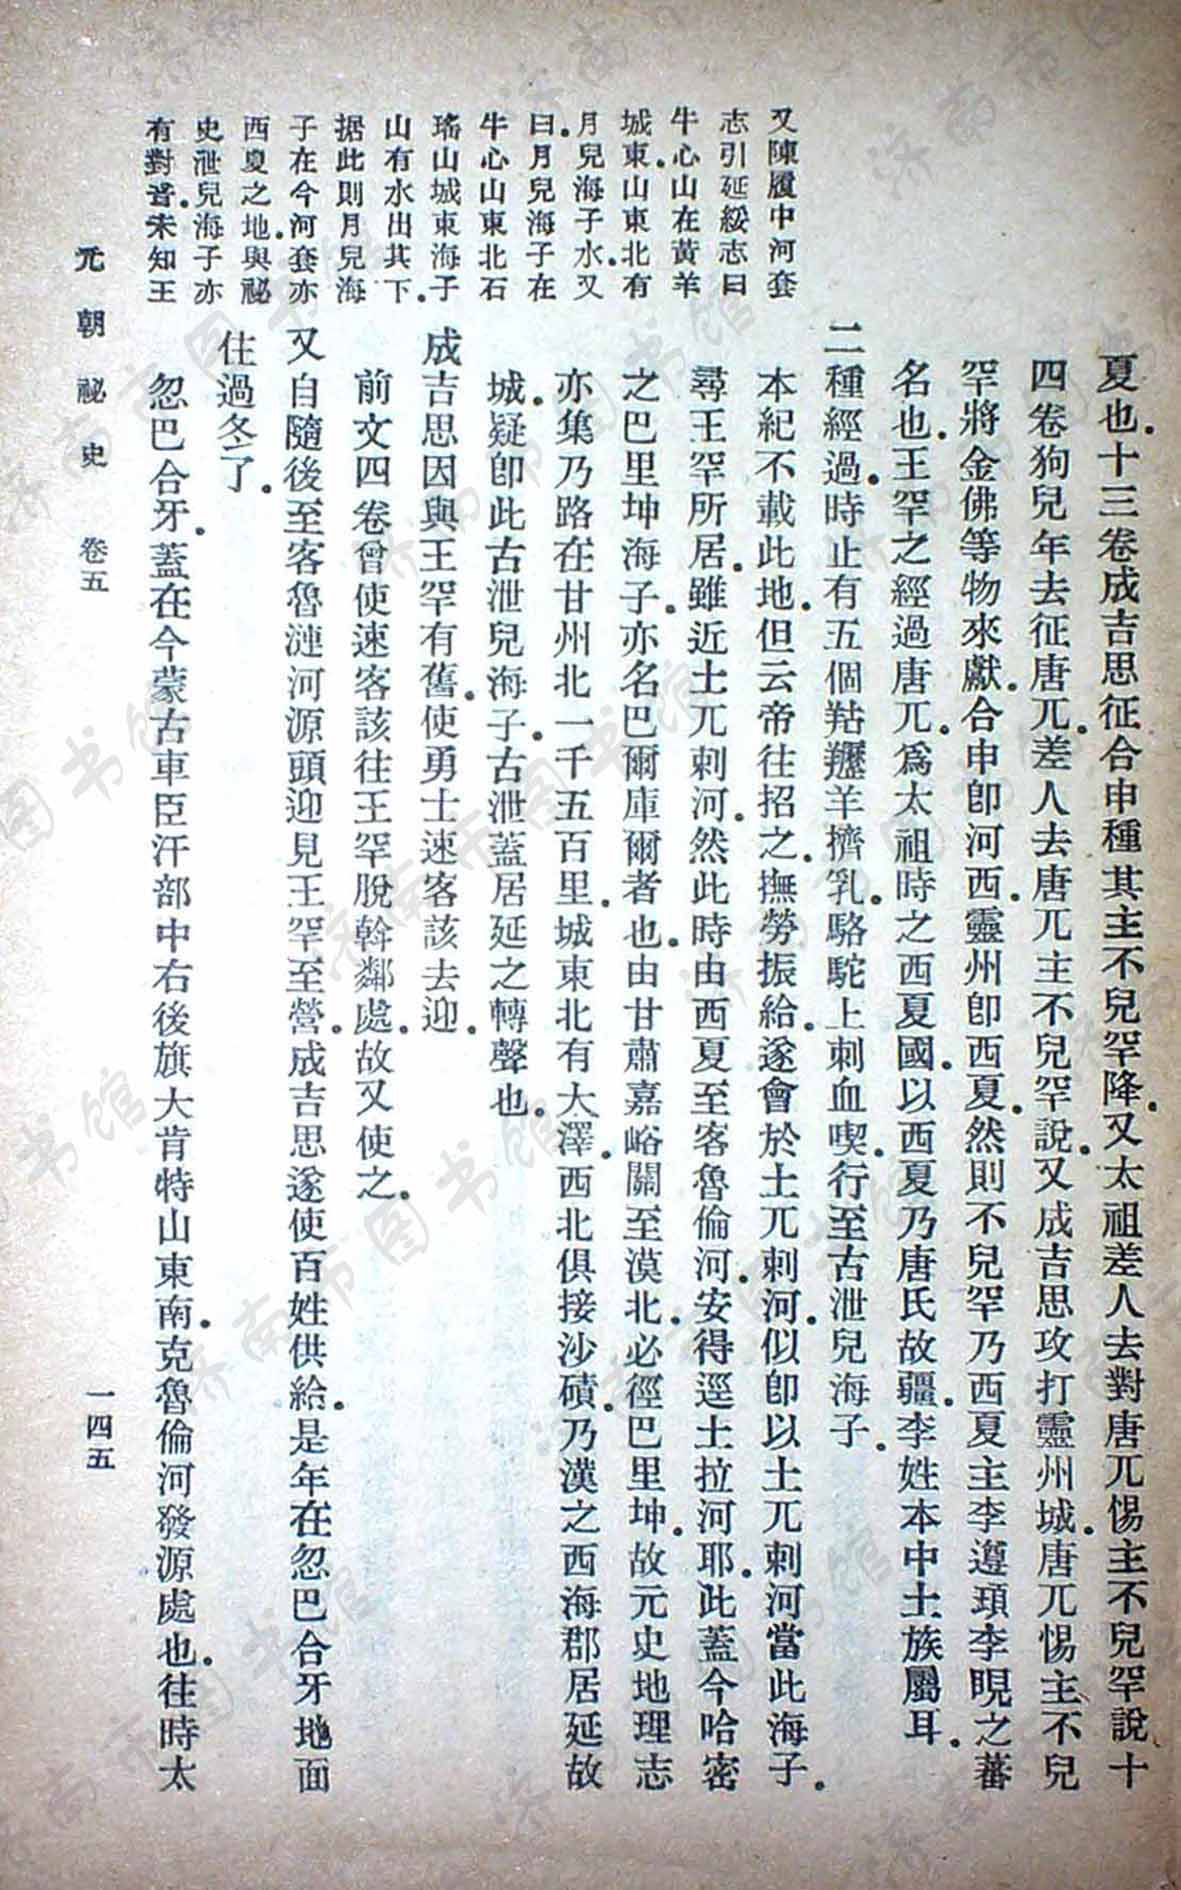 夏也。十三卷成吉思征合申種其主不兒罕降。又太祖差人去對唐兀惕主不兒罕說十
四卷狗兒年去征唐兀。差人去唐兀主不兒罕說。又成吉思攻打靈州城。唐兀惕主不兒
罕將金佛等物來獻。合申卽河西。靈州卽西夏。然則不兒罕乃西夏主李遵頊李晛之蕃
名也。王罕之經過唐兀。爲太祖時之西夏國。以西夏乃唐氏故疆。李姓本中土族屬耳。
二種經過。時止有五個羖䍽羊擠乳。駱駝上刺血喫。行至古泄兒海子。
本紀不載此地。但云帝往招之。撫勞振給。遂會於土兀剌河。似卽以土兀剌河當此海子。
尋王罕所居。雖近土兀剌河。然此時由西夏至客魯倫河。安得逕土拉河耶。此蓋今哈密
之巴里坤海子。亦名巴爾庫爾者也。由甘肅嘉峪關至漠北。必徑巴里坤。故元史地理志
亦集乃路在甘州北一千五百里。城東北有大澤。西北俱接沙磧。乃漢之西海郡居延故
城。疑卽此古泄兒海子。古泄蓋居延之轉聲也。
成吉思因與王罕有舊。使勇士速客該去迎。
前文四卷曾使速客該往王罕脫斡鄰處。故又使之。
又自隨後至客魯漣河源頭迎見王罕至營。成吉思遂使百姓供給。是年在忽巴合牙地面
住過冬了。
忽巴合牙。蓋在今蒙古車臣汗部中右後旗大肯特山東南。克魯倫河發源處也。往時太
又陳履中河套
志引延綏志曰
牛心山在黃羊
城東。山東北有
月兒海子水。又
曰。月兒海子在
牛心山東北石
瑤山城東海子
山有水出其下。
据此則月兒海
子在今河套亦
西夏之地。與祕
史泄兒海子亦
有對音。未知王
元朝祕史 卷五
一四五
济南市图书馆